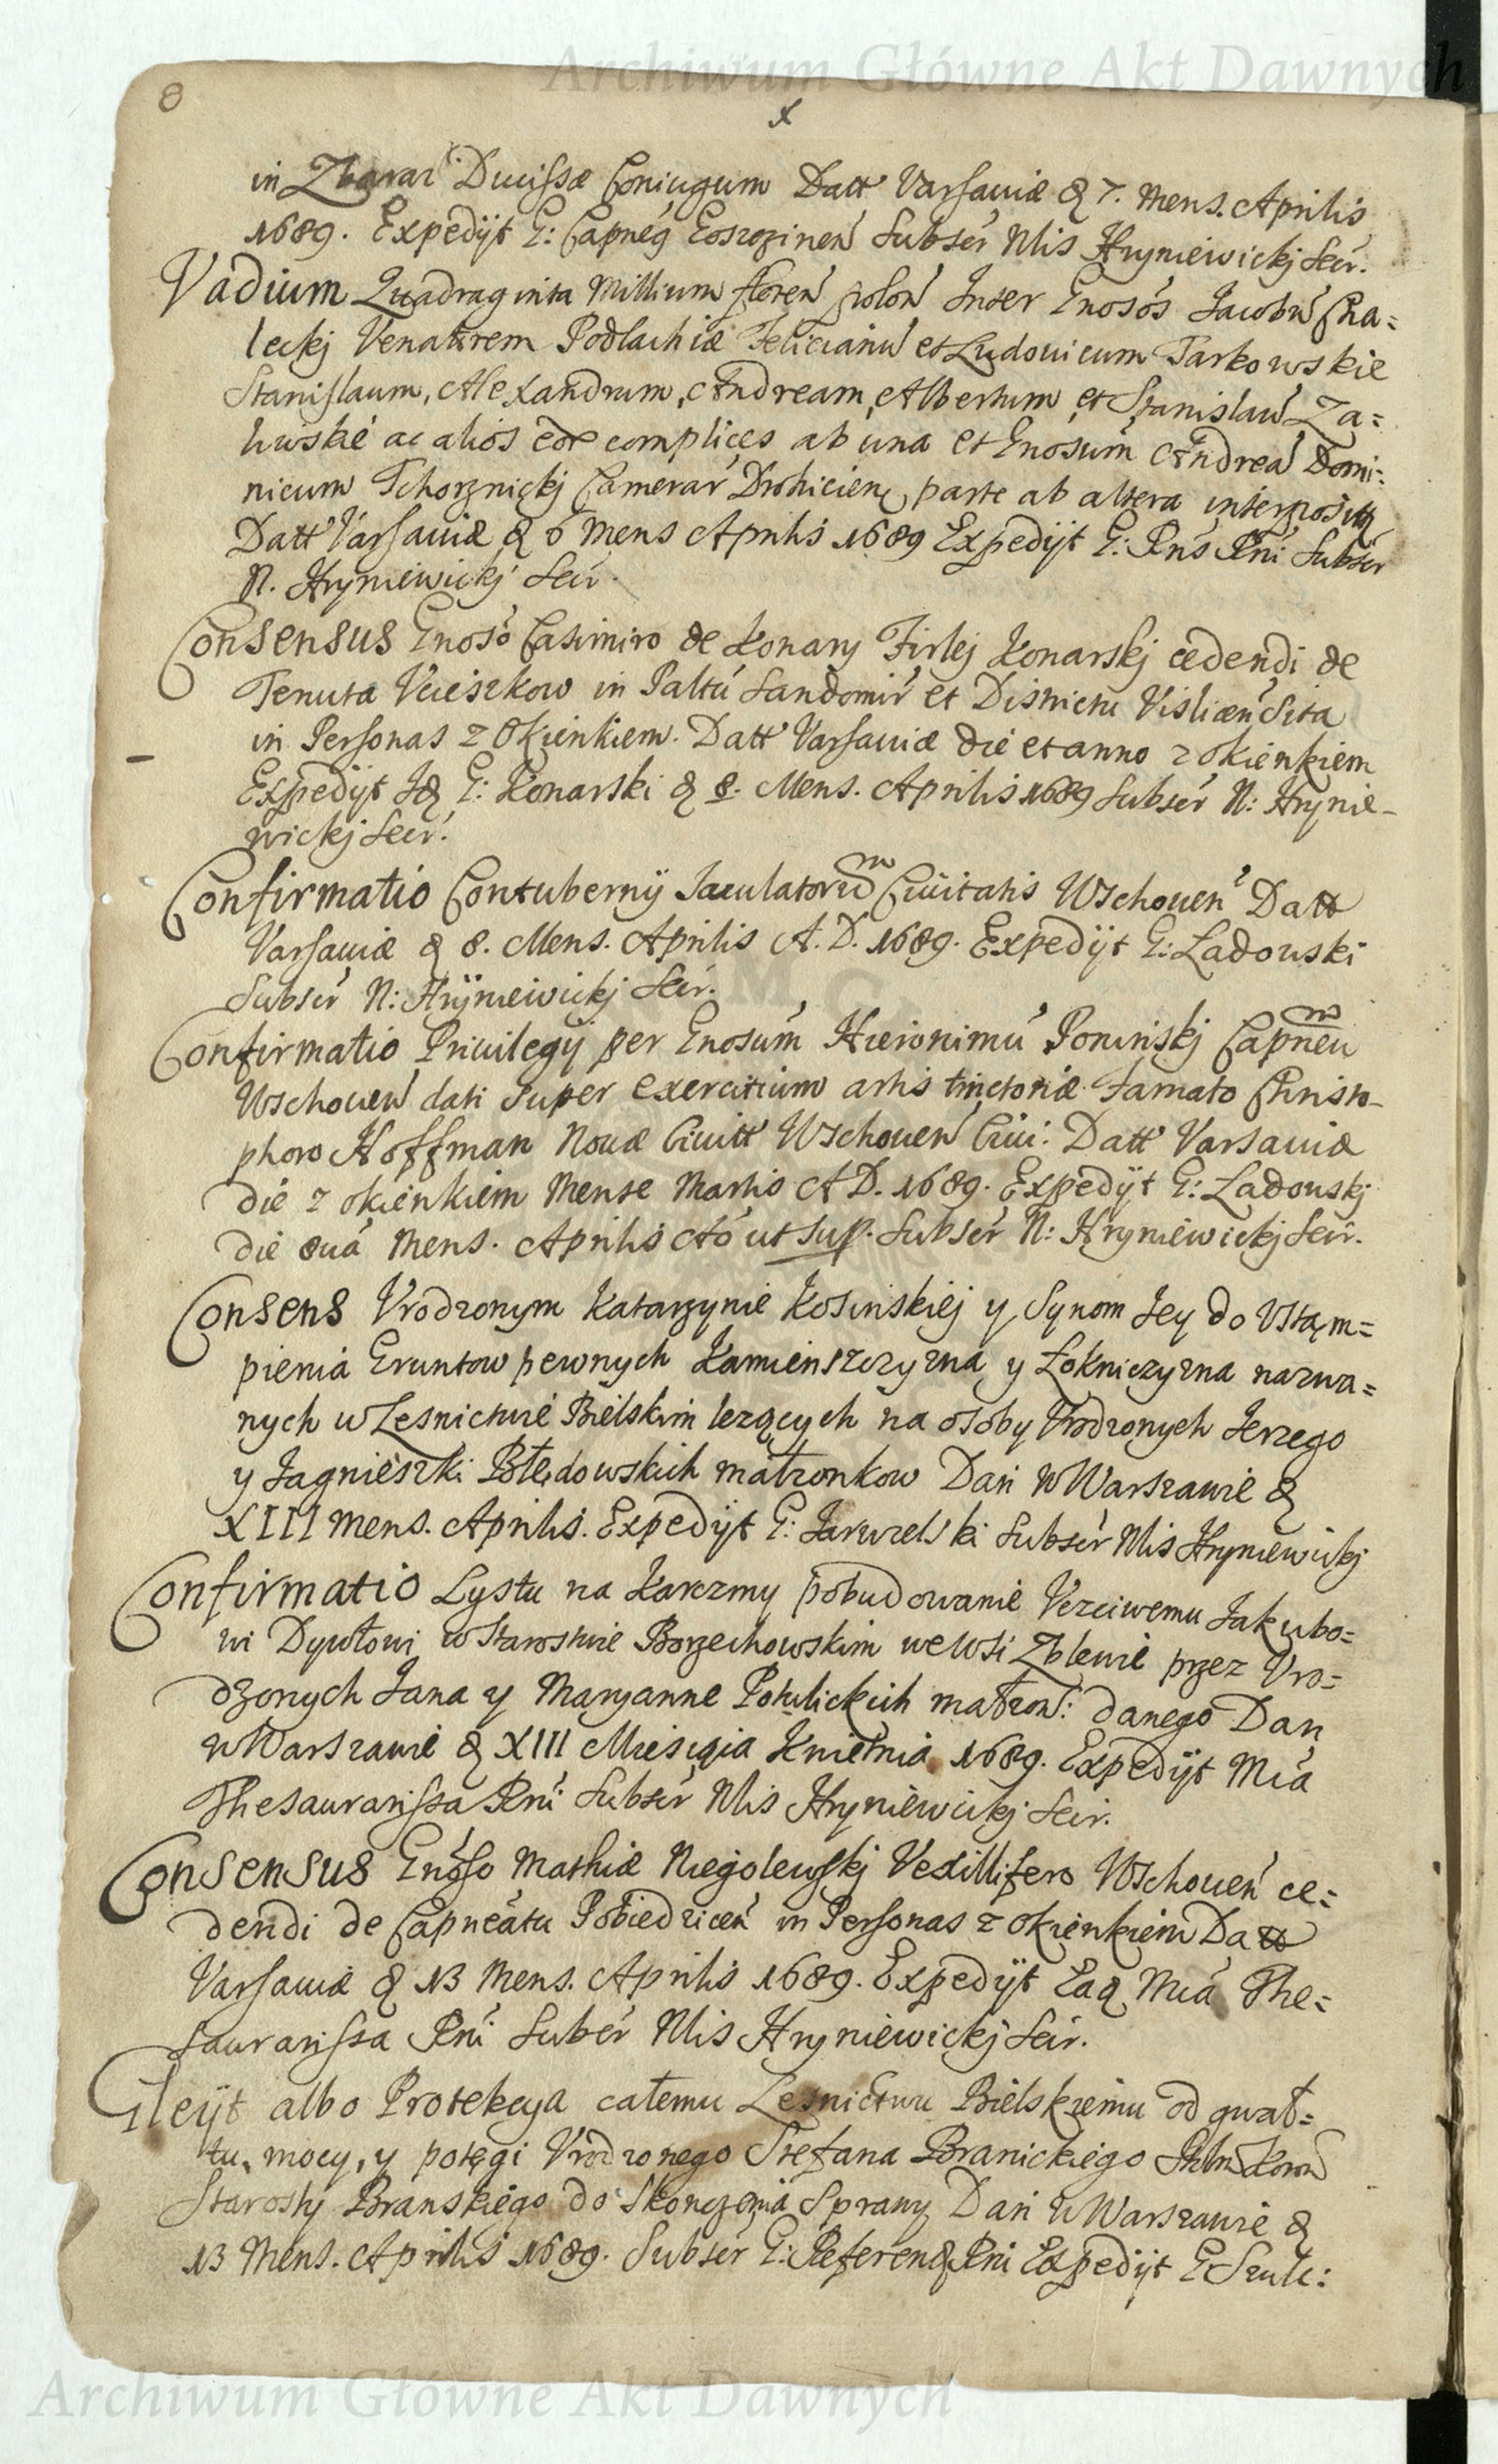 Archiwum Główne Akt Dawnych
8
x
in Zbaraz Ducissæ Coniugum Datt Varsauiæ d 7. Mens. Aprilis
1689. Expedijt G: Capneg Subscr Nlis Hryniewickj Secr.
Vadium Quadraginta Millium floren polon Inter Gnosos Jacobu Cha=
leckj Venatorem Podlachiæ Felicianu et Ludouicum Tarkowskie
Stanislaum, Alexandrum, Andream, Albertum et Stanislau Za=
luiskie ac alios eor complices ab una et Gnosum Andrea Domi=
nicum Tchorznickj Camerar Drohicien parte ab altera interposit
Datt Varsauiæ d 6 Mens Aprilis 1689 Expedijt G: Rns Rni Subscr
N. Hryniewickj Secr.
Consensus Gnoso Casimiro de Konary Firlej Konarskj cedendi de
Tenuta Vcieszkow in Paltu Sandomir et Districtu Vislicen Sita
in Personas z Okienkiem. Datt Varsauiæ die et anno z okienkiem
Expedijt Id G: Konarski d 8. Mens. Aprilis 1689 Subscr N: Hrynie-
wickj Secr.
Confirmatio Contubernij Jaculatorum Ciuitatis Wschouen Datt
Varsauiæ d 8. Mens. Aprilis A. D. 1689. Expedijt G: Ladowski
Subscr N: Hryniewickj Secr.
Confirmatio Priuilegij per Gnosum Hieronimu Poninskj Capneu
Wschouen dati super exercitium artis tinctoriæ Famato Christo-
phoro Hoffman Nouæ Ciuitt Wschouen Ciui. Datt Varsauiæ
die z okienkiem Mense Martio A D. 1689. Expedijt G: Ladowskj
die 8ua Mens. Aprilis Ao ut sup. Subscr N: Hryniewickj Secr.
Consens Vrodzonym Katarzynie Kosinskiej y Synom Jey do Vstąm=
pienia Gruntow pewnych Kamienszczyzna y Łokniczyzna nazwa=
nych w Lesnictwie Bielskim lezących na osoby Vrodzonych Jerzego
y Jagnieszki Błędowskich małzonkow Dan w Warszawie d
XIII Mens. Aprilis. Expedijt G: Jaruzelski Subscr Nlis Hryniewickj
Confirmatio Lystu na Karczmy pobudowanie Vczciwemu Jakubo=
wi Dywłowi w Starostwie Borzechowskim we Wsi Zblewie przez Vro=
dzonych Jana y Maryanne Potulickich małzon: danego Dan
w Warszawie d XIII Miesiąca Kwietnia 1689. Expedijt Mia
Thesaurarissa Rni Subscr Nlis Hryniewickj Secr.
Consensus Gnoso Mathiæ Niegolewskj Vexillifero Wschouen ce=
dendi de Capneatu Pobiedzicen in Personas z okienkiem Datt
Varsauiæ d 13 Mens. Aprilis 1689. Expedijt Ead Mia The=
saurarissa Rni Subscr Nlis Hryniewickj Secr.
Gleyt albo Protekcya całemu Lesnictwu Bielskiemu od gwał=
tu, mocy, y potęgi Vrodzonego Stefana Branickiego Koron
Starosty Branskiego do Skonczenia Sprawy Dan w Warszawie d
13 Mens. Aprilis 1689. Subscr G: Referend Rni Expedijt G Szulc:
Archiwum Główne Akt Dawnych